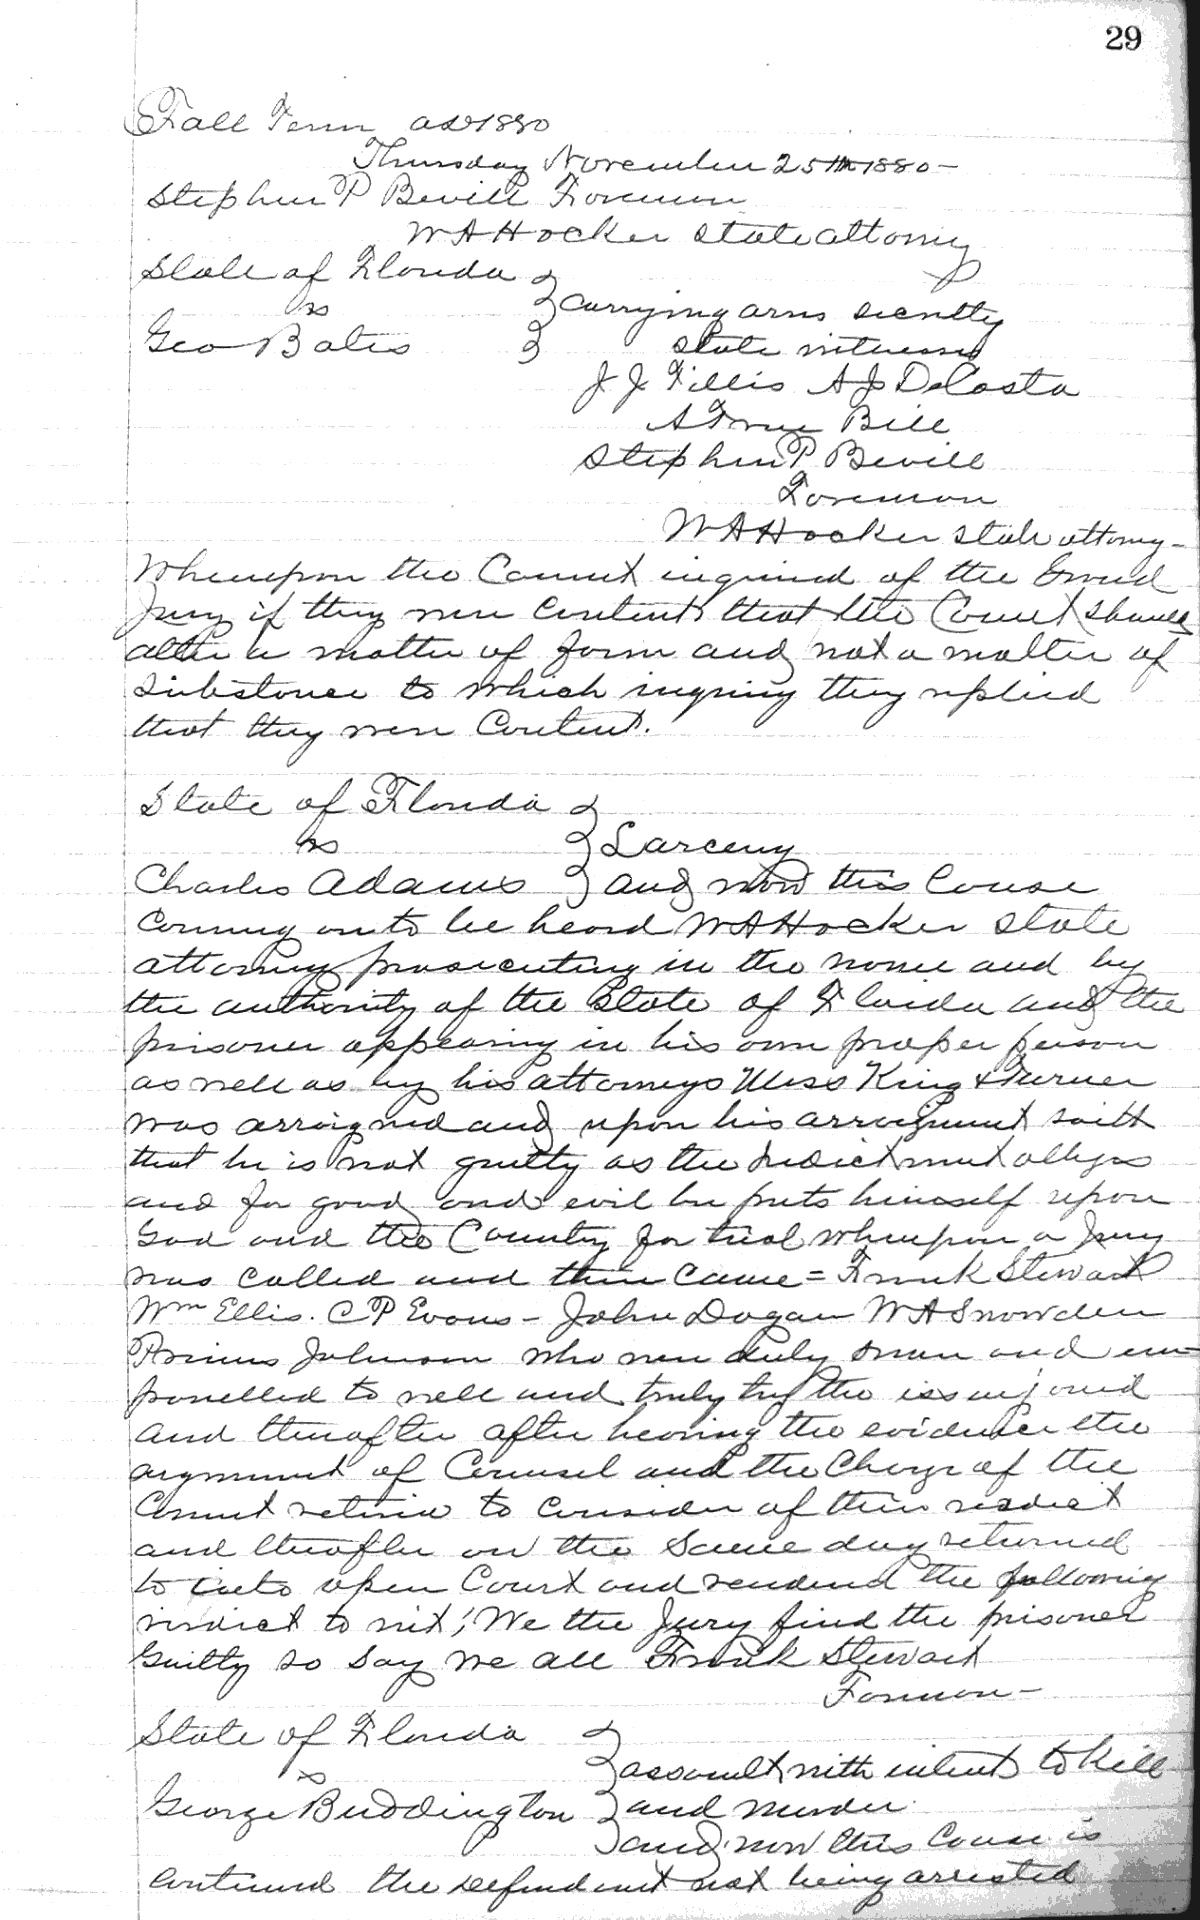 29
Fall Term AD 1880
Thursday November 25th 1880-
Stephen P Bevill Foreman
W A Hocker state attorney
State of Florida }
vs } carrying arms secretly
Geo Bates } State witnesses
J J Fillis A J DeCosta
A True Bill
Stephen P Bevill
Foreman
W A Hocker state attorney-
Whereupon the Court inquired of the Grand
Jury if they were content that the Court should
alter a matter of form and not a matter of
Substance to which inquiry they replied
that they were Content.
State of Florida }
vs } Larceny
Charles Adams } and now this Cause
Coming on to be heard W A Hocker State
attorney prosecuting in the name and by
the authority of the State of Florida and the
prisoner appearing in his own proper person
as well as by his attorneys Mess King & Turner
was arraigned and upon his arraignment saith
that he is not guilty as the Indictment alleges
and for good and evil he puts himself upon
God and the Country for trial whereupon a Jury
was called and then came = Frank Stewart
Wm Ellis. C P Evans - John Dogan W A Snowden
Primus Johnson who were duly sworn and em=
panelled to well and truly try the issue joined
and thereafter after hearing the evidence the
argument of Counsel and the Charge of the
Court retired to consider of their verdict
and thereafter on the Same day returned
to into open Court and rendered the following
verdict to wit; We the Jury find the prisoner
Guilty so Say we all Frank Stewart
Foreman-
State of Florida }
vs } assault with intent to kill
George Buddington } and murder
} and now this Cause is
continued the defendant not being arrested